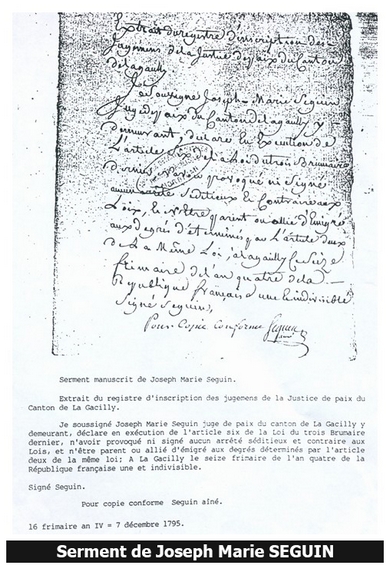 Extrait du registre d'inscription des
Jugemens de la Justice de paix du Canton
de lagacilly
Je soussigné Joseph-Marie Seguin
Juge de paix du Canton de Lagacilly y
demeurant, déclare en Execution de
L'article Six de la Loi du trois Brumaire
dernier, n'avoir provoqué ni Signé
aucun arrêté Séditieux et Contraire aux
Loix, et n'être parent ou allié d'Emigré
aux degrés déterminés par L'article deux
de La Même Loi, à Lagacilly Le Seize
frimaire de L'an quatre de la
République française une et indivisible
Signé Seguin,
Pour Copie Conforme Seguin
Serment manuscrit de Joseph Marie Seguin.
Extrait du registre d'inscription des jugemens de la Justice de paix du
Canton de La Gacilly.
Je soussigné Joseph Marie Seguin juge de paix du canton de La Gacilly y
demeurant, déclare en exécution de l'article six de la Loi du trois Brumaire
dernier, n'avoir provoqué ni signé aucun arrêté séditieux et contraire aux
Lois, et n'être parent ou allié d'émigré aux degrés déterminés par l'article
deux de la même loi; A La Gacilly le seize frimaire de l'an quatre de la
République française une et indivisible.
Signé Seguin.
Pour copie conforme Seguin aîné.
16 frimaire an IV = 7 décembre 1795.
Serment de Joseph Marie SEGUIN